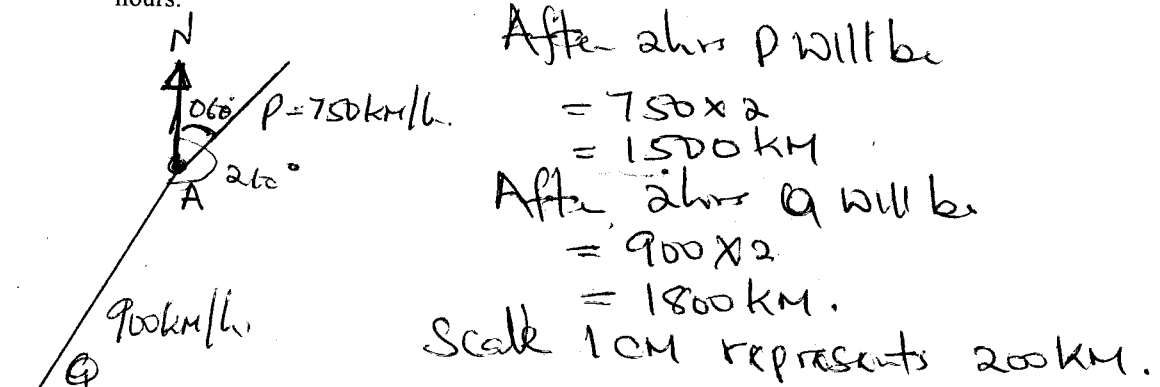 hours.
N
060° P=750km/h.
210°
A
900km/h.
Q
After 2hrs P will be
= 750 x 2
= 1500 KM
After 2hrs Q will be
= 900 x 2
= 1800 KM.
Scale 1 CM represents 200 KM.